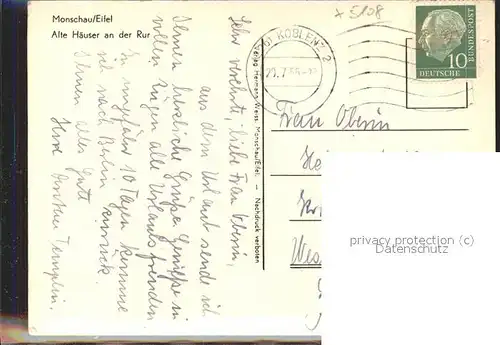 Monschau/Eifel
Alte Häuser an der Rur
Sehr verehrte, liebe Frau Oberin,
aus dem Urlaub sende ich
Ihnen herzliche Grüße. Genieße in
vollen Zügen alle Urlaubsfreuden
In ungefähr 10 Tagen komme
ich nach Berlin zurück.
Ihnen alles Gute
Ihre
Verlag Hermann Weiss, Monschau/Eifel. — Nachdruck verboten
KOBLENZ 2
5108
DEUTSCHE
BUNDESPOST
10
Frau Oberin
privacy protection (c)
Datenschutz